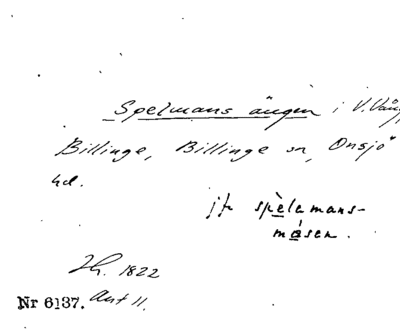 Spelmans ängen i V. Vång
Billinge, Billinge sn, Onsjö
hd.
jfr spèlamans-
måsen.
Th. 1822
Nr 6137. Avt 11.